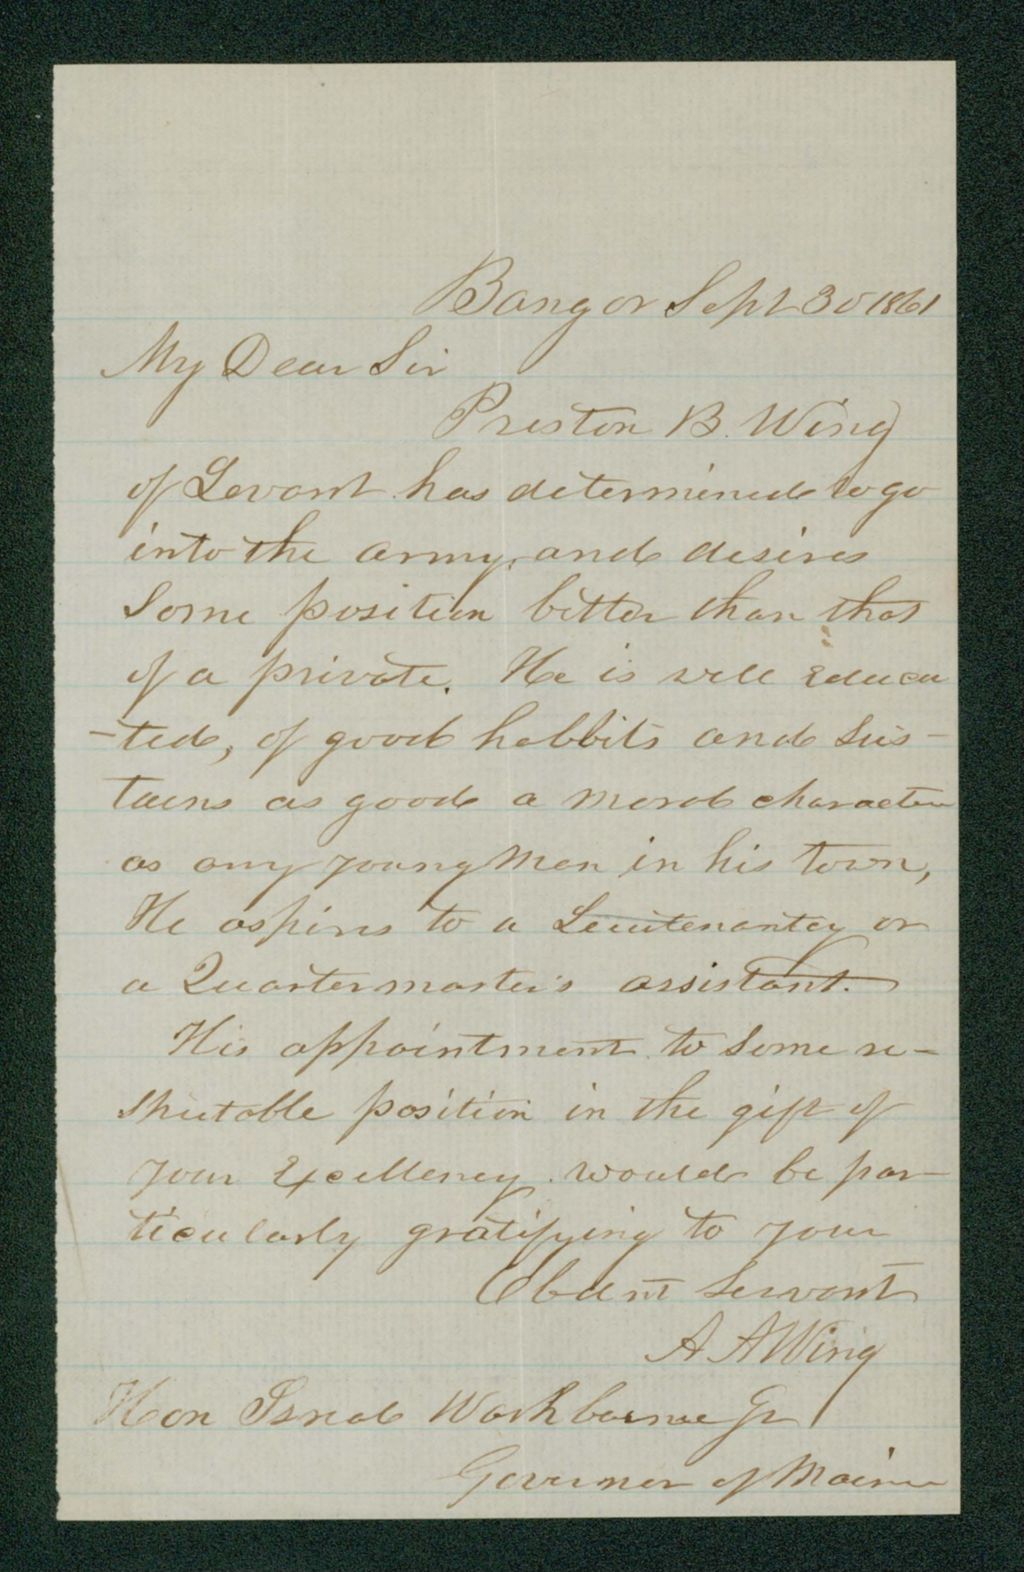 Bangor Sept 30 1861
My Dear Sir
Preston B. Wing
of Levant has determined to go
into the army, and desires
Some position better than that
of a private. He is well Educa
-ted, of good habbits and Sus-
tains as good a moral character
as any young man in his town,
He aspires to a Leuitenantcy or
a Quartermaster's assistant.
His appointment to Some re-
spectable position in the gift of
your Excellency would be par-
ticularly gratifying to your
Obdnt Servant
A A Wing
Hon Israel Washburne Jr
Governor of Maine